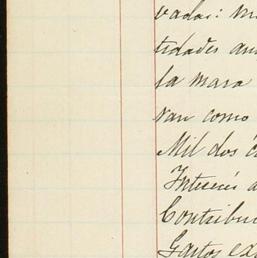 vadas: m
tidades an
la masa
van como
Mil dos c
Interés d
Contribu
Gastos ex